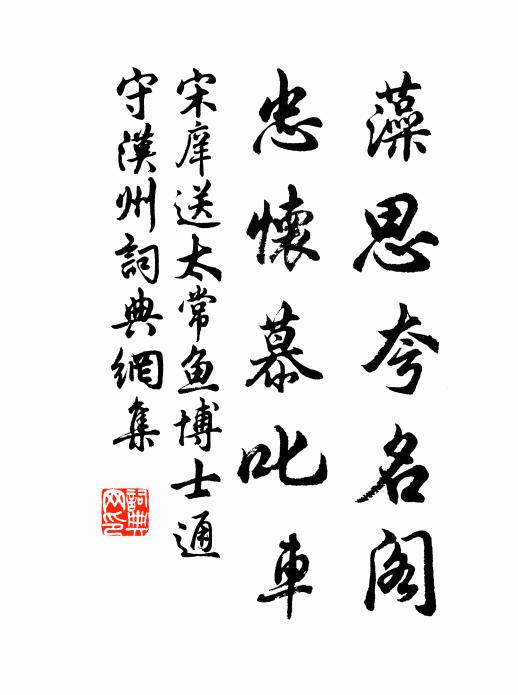 藻思夸名阁
忠懷慕叱車
宋庠送太常鱼博士通
守漢州詞典網集
詞典
网印